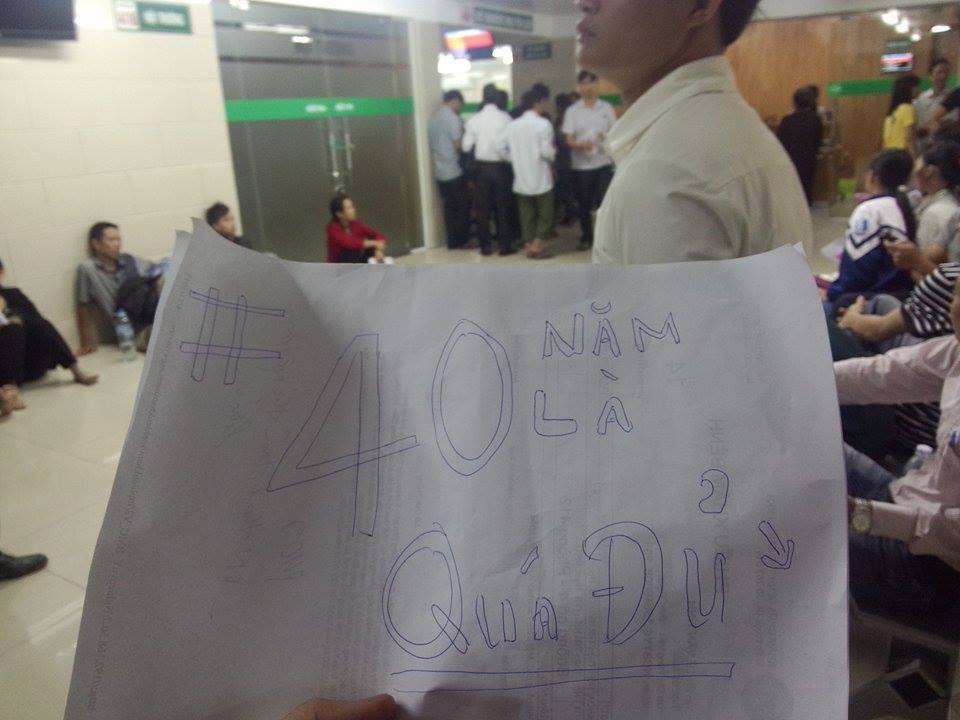 # 40 NĂM
LÀ
QUÁ ĐỦ